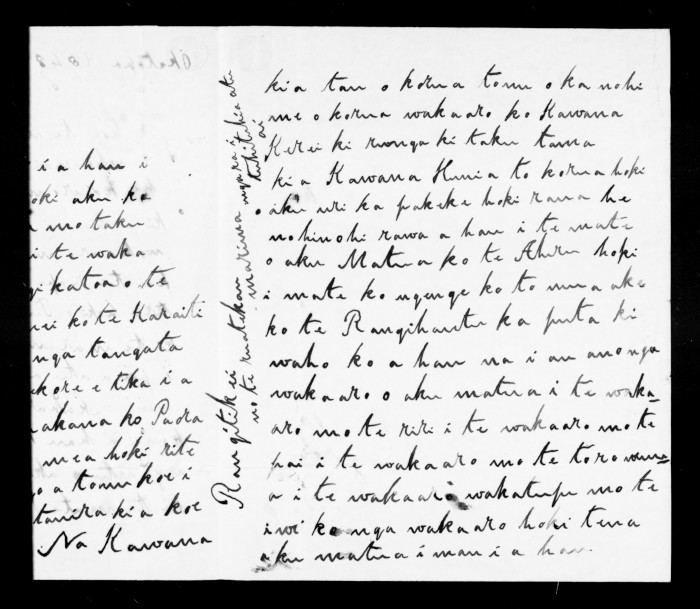 Oketopa 1848
i a hau i
hoki aku ko
mo taku
i te waka
katoa o te
nei ko te Karaiti
nga tangata
kore e tika i a
akana ko Paora
mea hoki rite
a tomu koe i
tauira kia koe
Na Kawana
Rangitikei
no te ruatekau marima ngara i tuhituhia ai
kia tau o korua tomu o ka nohi
me o korua wakaaro ko Kawana
Kerei ki runga ki taku tama
kia Kawana Hunia to korua hoki
o aku uri ka pakeke hoki raua he
nohinohi rawa a hau i te mate
o aku Matua ko te Ahuru hoki
i mate ko ngenge ko to mua ake
ko te Rangihautu ka puta ki
waho ko a hau na i au anonga
wakaaro o aku matua i te waka-
aro mo te riri i te wakaaro mo te
pai i te wakaaro mo te toro wenu-
a i te wakaaro wakatupu mo te
iwi ko nga wakaaro hoki tena
aku matua i mau i a hau.